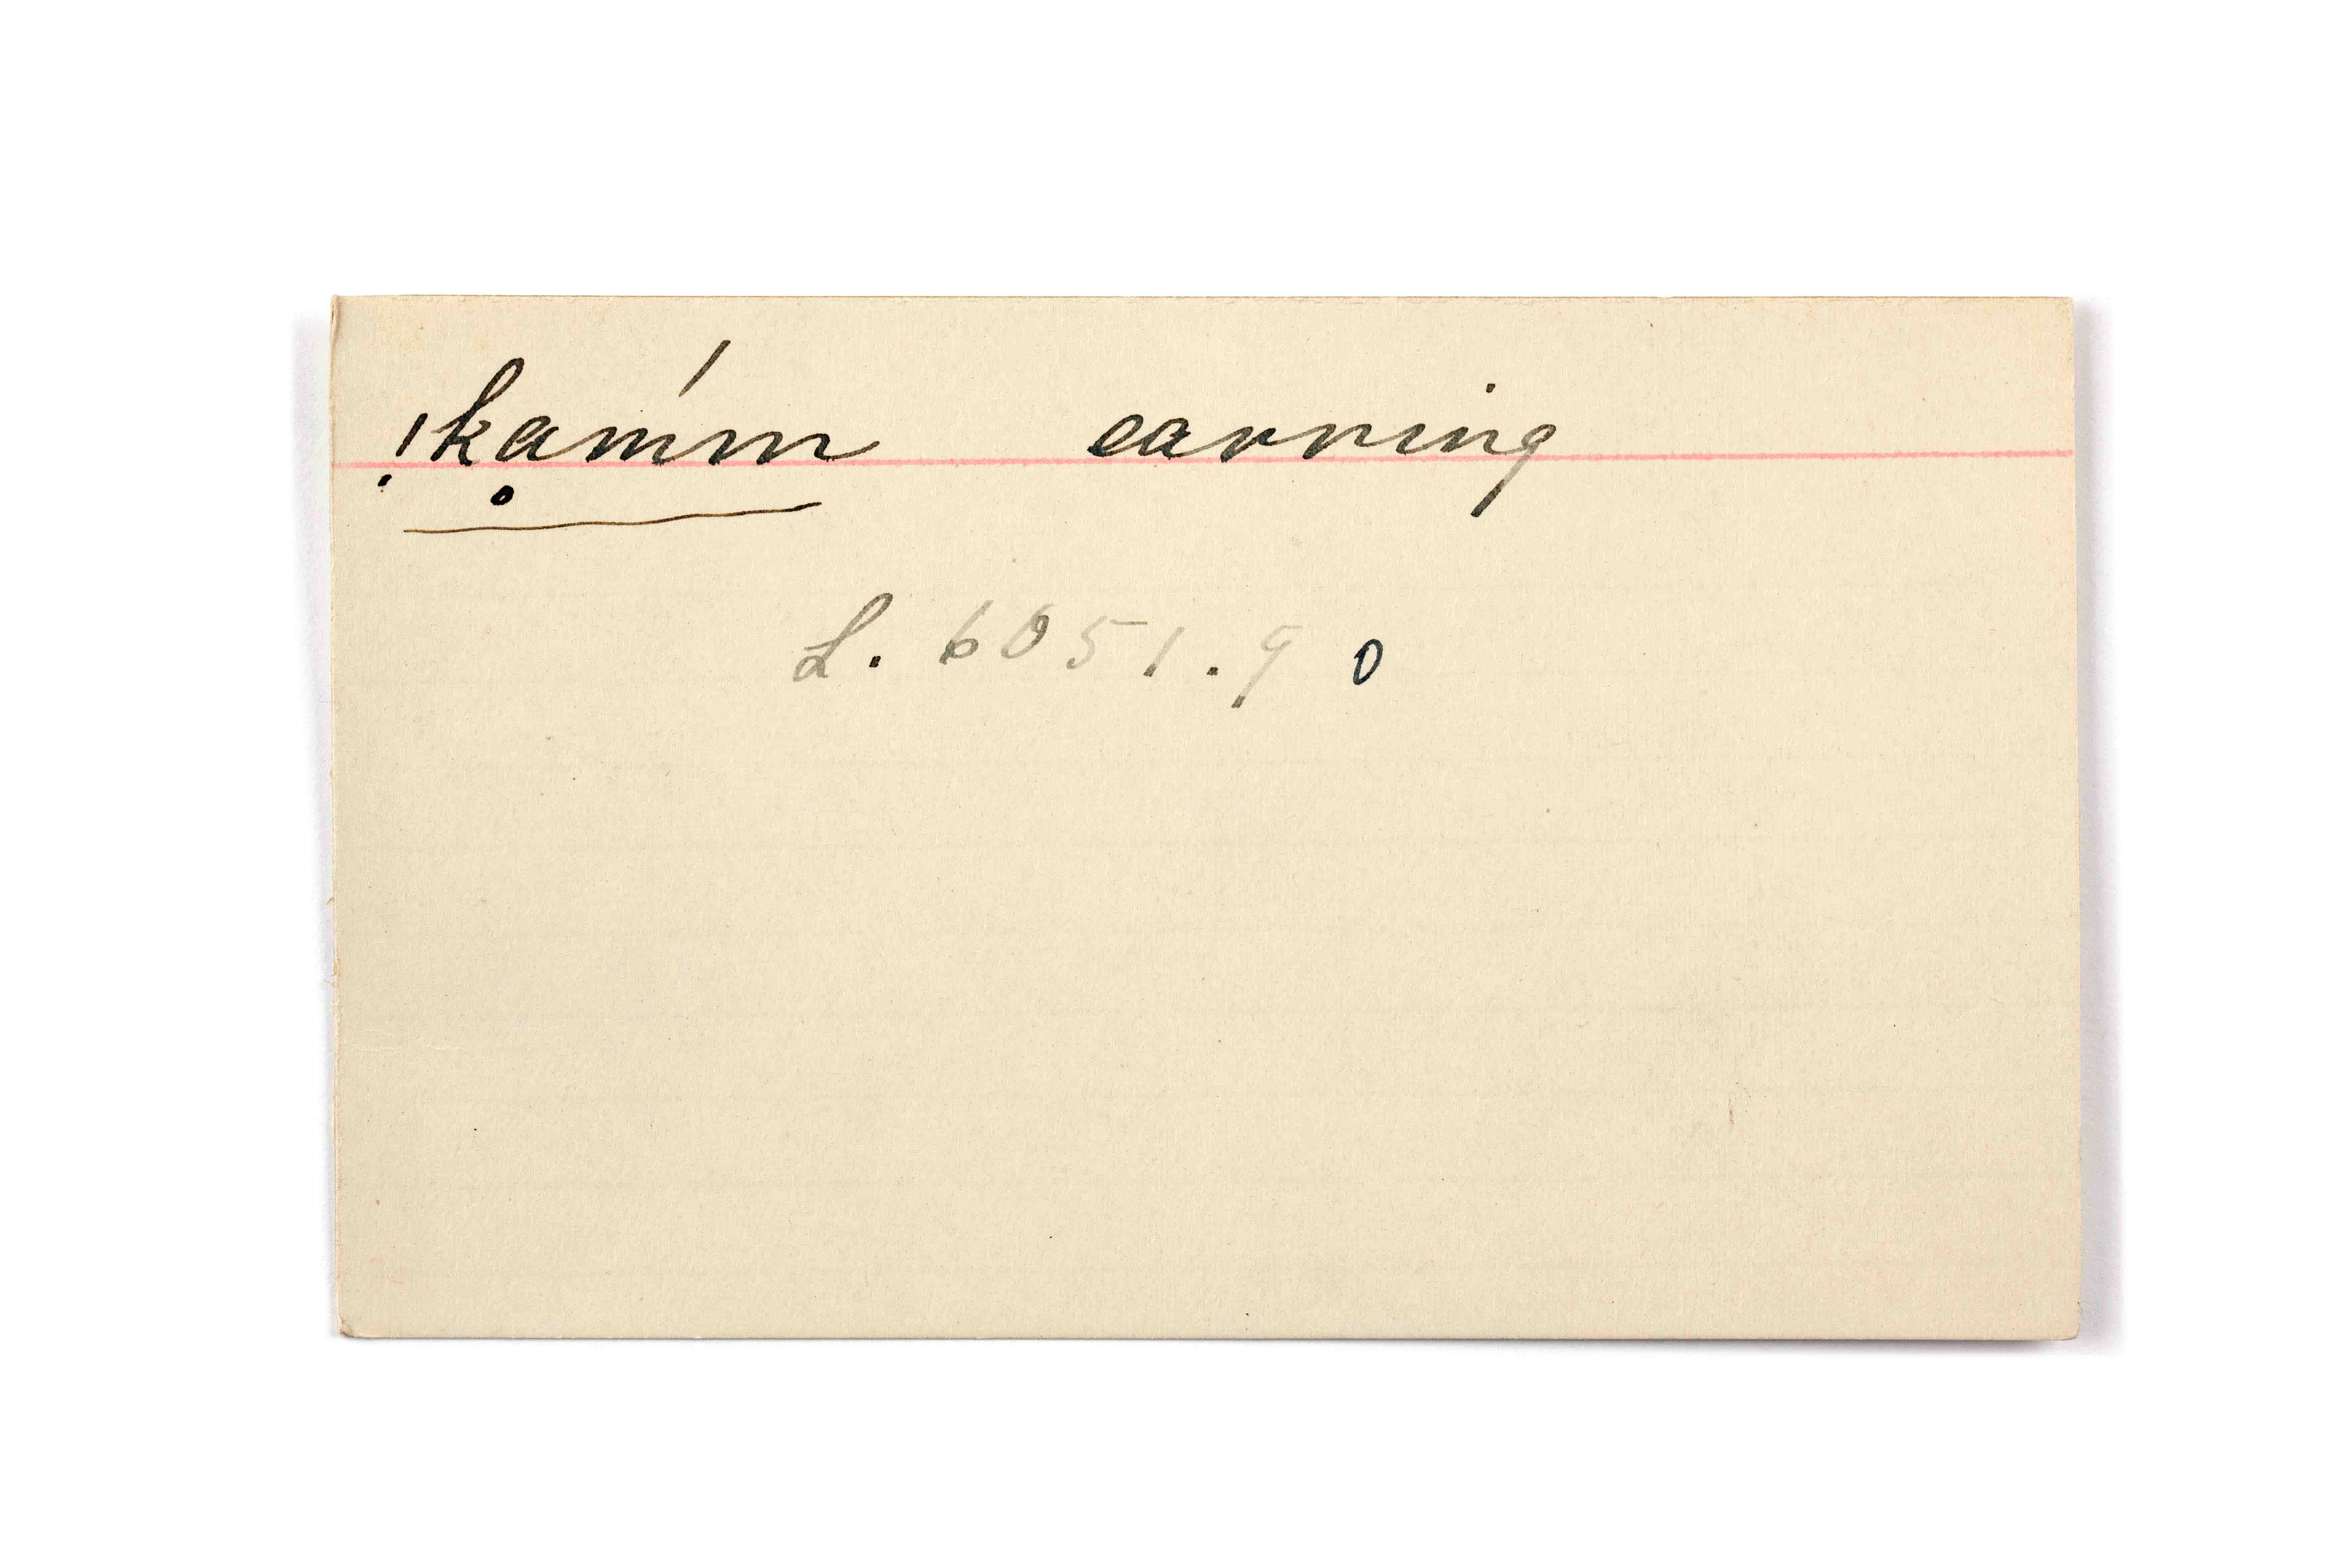 !kạmḿ earring
L. 6051.90